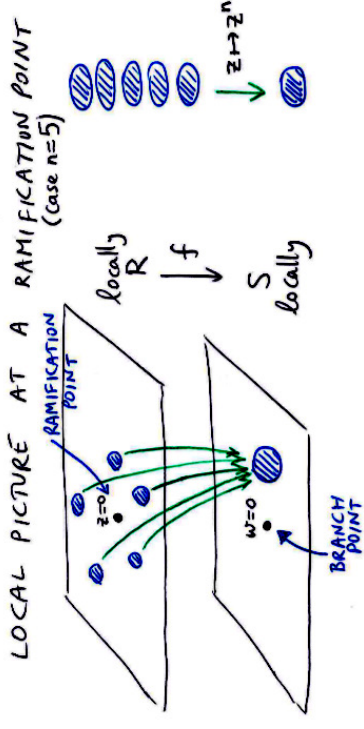 LOCAL PICTURE AT A RAMIFICATION POINT
(case n=5)
RAMIFICATION
POINT
z=0
locally
R
f
S
locally
z↦zⁿ
w=0
BRANCH
POINT